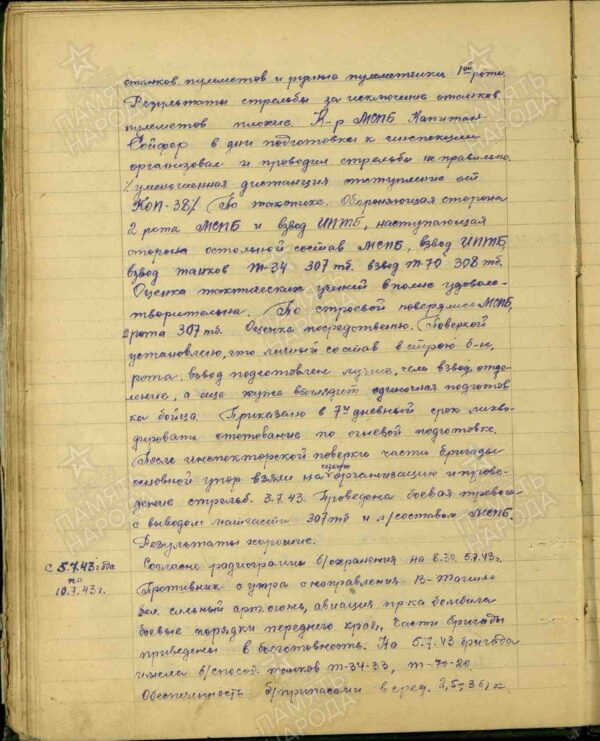 станков. пулеметов и ручные пулеметчики 1ой роты.
Результаты стрельбы за исключение станков.
пулеметов плохие. К-р МСПБ Капитан
Сойфер в дни подготовки к инспекции
организовал и проводил стрельбы не правильно
/уменьшенная дистанция отступление от
КОП-38/. По тактике. Обороняющая сторона
2 рота МСПБ и взвод ИПТБ, наступающая
сторона остольной состав МСПБ, взвод ИПТБ,
взвод танков Т-34 307 тб. взвод Т-70 308 тб.
Оценка тактических учений вполне удовле-
творительна. По строевой поверялись МСПБ,
2 рота 307 тб. Оценка посредственно. Поверкой
установлено, что личный состав в строю б-н,
рота, взвод подготовлен лучше, чем взвод, отде-
ление, а еще хуже выглядит одиночная подготов
ка бойца. Приказано в 7ми дневный срок ликви-
дировать отставание по огневой подготовке.
После инспекторской поверки части бригады
основной упор взяли на четкую организацию и прове-
дение стрельб. 3.7.43. Проведена боевая тревога
с выводом матчасти 307 тб и л/составом МСПБ.
Результаты хорошие.
с 5.7.43г.
по
10.7.43г.
Согласно радиограммы б/охранения на 8.30 5.7.43г.
Противник с утра с направления
вел сильный артогонь, авиация пр-ка бомбила
боевые порядки переднего края, части бригады
приведены в боеготовность. На 5.7.43 бригада
имела б/способ. танков Т-34-33, Т-70-20.
Обеспеченность б/припасами в сред. 2,5-3 б/к
ПАМЯТЬ НАРОДА